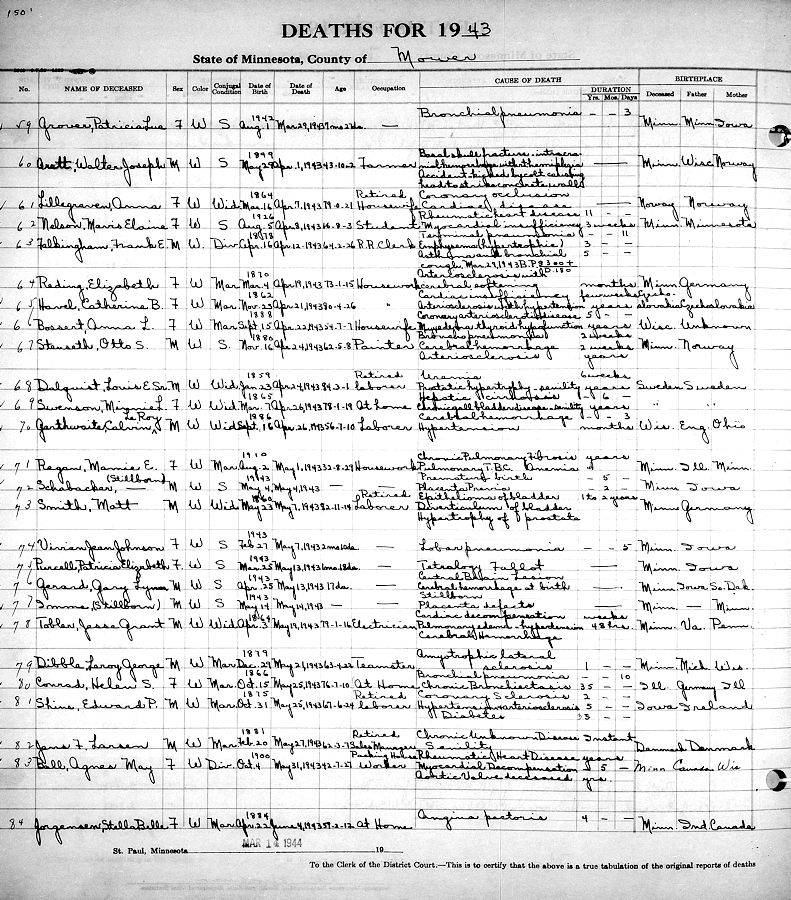 150
DEATHS FOR 1943
State of Minnesota, County of Mower
No. NAME OF DECEASED Sex Color Conjugal Condition Date of Birth Date of Death Age Occupation CAUSE OF DEATH DURATION Yrs. Mos. Days BIRTHPLACE Deceased Father Mother
59 Grover, Patricia Lue F W S 1942 Aug 1 Mar 29, 1943 — Bronchial pneumonia – – 3 Minn. Minn. Iowa
60 Arett, Walter Joseph M W S 1899 May 29 Apr. 1, 1943 43-10-2 Farmer Basal skull fracture, intracra-
nial hemorrhage with hemiplegia — Minn. Wisc. Norway
Accident, kicked by colt causing
head to strike concrete wall
61 Lillegraven, Anna F W Wid 1864 Mar. 16 Apr. 7, 1943 79-0-21 Retired Housewife Coronary occlusion
Cardiac disease — Norway Norway
62 Nelson, Mavis Elaine F W S 1926 Aug. 5 Apr. 8, 1943 16-8-3 Student Rheumatic heart disease 11 – –
Myocardial insufficiency 3 weeks Minn. Minnesota
63 Falkingham, Frank E. M W. Div. 1878 Apr. 16 Apr. 12, 1943 64-2-26 R.R. Clerk Terminal pneumonia – – 11
Emphysema (hypertrophic) 3 – –
Asthma and bronchial 5 – –
cough, Mar. 29, 1943 B.P. 300+
D. 180
64 Reding, Elizabeth F W Mar. 1870 Mar. 4 Apr. 19, 1943 73-1-15 Housework Arteriosclerosis with
cerebral softening months Minn. Germany
65 Havel, Catherine B. F W Mar. 1862 Nov. 23 Apr. 21, 1943 80-4-26 " Cardiac insufficiency few weeks Czecho-
Arteriosclerosis with hypertension years slovakia Czechoslovakia
66 Bossert, Anna L. F W Mar. 1888 Sept. 15 Apr. 22, 1943 54-7-7 Housewife Coronary arteriosclerotic disease 5 – –
Myxedema thyroid hypofunction years Wisc. Unknown
67 Stenseth, Otto S. M W S 1880 Nov. 16 Apr. 24, 1943 62-5-8 Painter Broncho pneumonia 2 weeks
Cerebral hemorrhage 2 weeks Minn. Norway
Arteriosclerosis years
68 Dalquist, Louis E. Sr. M W Wid. 1859 Jan. 23 Apr. 24, 1943 84-3-1 Retired laborer Uremia 6 weeks
Prostatic hypertrophy - senility years Sweden Sweden
69 Swenson, Minnie L. F W Wid. 1865 Mar. 7 Apr. 26, 1943 78-1-19 At home Hepatic cirrhosis – 6 –
Chronic gall bladder disease - senility years " "
70 Garthwaite, Calvin LeRoy M W Wid 1886 Sept. 16 Apr. 26, 1943 56-7-10 Laborer Cerebral hemorrhage – – 3
Hypertension months Wis. Eng. Ohio
71 Regan, Mamie E. F W Mar. 1910 Aug. 2 May 1, 1943 32-8-29 Housework Chronic Pulmonary Fibrosis years
Pulmonary T.B.C. Anemia Minn. Ill. Minn.
72 (Stillborn) Schabacker, — M W S 1943 May 4 May 4, 1943 — — Premature birth – 5 –
Placenta Previa – 2 – Minn. Iowa
73 Smith, Matt M W Wid 1860 May 23 May 7, 1943 82-11-14 Retired Laborer Epithelioma of bladder 1 to 2 years
Diverticulum of bladder Minn. Germany
Hypertrophy of prostata
74 Vivian Jean Johnson F W S 1943 Feb 27 May 7, 1943 2mo 10da. — Lobar pneumonia – – 5 Minn. Iowa
75 Purcell, Patricia Elizabeth F W S 1943 Mar. 25 May 13, 1943 1mo. 18da. — Tetralogy Fallot — Minn. Iowa
76 Gerard, Gary Lynn M W S 1943 Apr. 25 May 13, 1943 17da. — Central Brain Lesion
Cerebral hemorrhage at birth — Minn. Iowa So. Dak.
77 Imms (Stillborn) M W S 1943 May 14 May 14, 1943 — — Stillborn
Placenta defects — Minn. — Minn.
78 Tobler, Jesse Grant M W Wid. 1864 Apr. 3 May 19, 1943 79-1-16 Electrician Cardiac decompensation weeks
Pulmonary edema - hypertension 48 hrs. Minn. Va. Penn.
Cerebral Hemorrhage
79 Dibble, Leroy George M W Mar. 1879 Dec. 29 May 21, 1943 63-4-22 Teamster Amyotrophic lateral
sclerosis 1 – – Minn. Mich. Wis.
80 Conrad, Helen S. F W Mar. 1866 Oct. 15 May 25, 1943 76-7-10 At Home Bronchial pneumonia – – 10
Chronic Bronchiectasis 35 – – Ill. Germany Ill
81 Shine, Edward P. M W Mar. 1875 Oct. 31 May 25, 1943 67-6-24 Retired laborer Coronary Sclerosis 2
Hypertension arteriosclerosis 5 – – Iowa Ireland
Diabetes 35 – –
82 Jens F. Larsen M W Mar. 1881 Feb. 20 May 27, 1943 62-3-7 Retired Sales Manager Chronic Unknown Disease Instant
Senility Denmark Denmark
83 Bell, Agnes May F W Div. 1900 Oct. 4 May 31, 1943 42-7-27 Packing House Worker Rheumatic Heart Disease years
Myocardial Decompensation – 5 – Minn. Canada Wis
Aortic Valve deceased yrs.
84 Jorgensen, Stella Belle F W Mar. 1884 Apr. 22 June 4, 1943 59-2-12 At Home Angina pectoris 4 – – Minn. Ind. Canada
MAR 14 1944
St. Paul, Minnesota 19
To the Clerk of the District Court:—This is to certify that the above is a true tabulation of the original reports of deaths